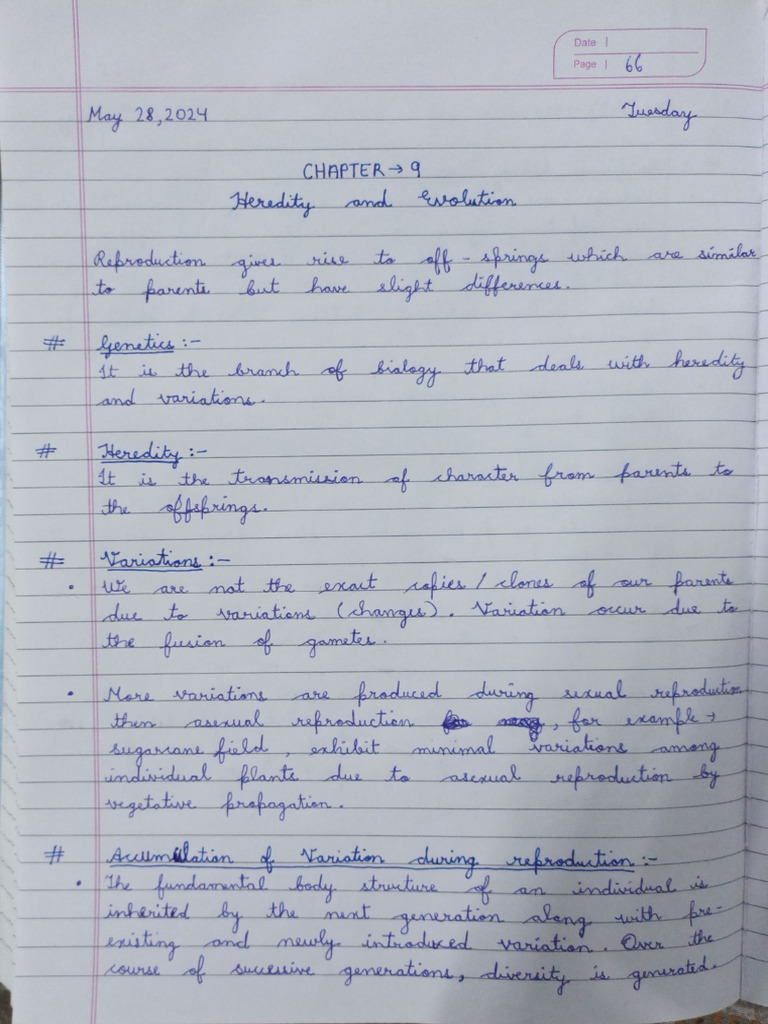 Date |
Page | 66
May 28, 2024 Tuesday
CHAPTER → 9
Heredity and Evolution
Reproduction gives rise to off - springs which are similar
to parents but have slight differences.
# Genetics :-
It is the branch of biology that deals with heredity
and variations.
# Heredity :-
It is the transmission of character from parents to
the offsprings.
# Variations :-
• We are not the exact copies / clones of our parents
due to variations (changes). Variation occur due to
the fusion of gametes.
• More variations are produced during sexual reproduction
then asexual reproduction , for example →
sugarcane field , exhibit minimal variations among
individual plants due to asexual reproduction by
vegetative propagation.
# Accumulation of Variation during reproduction :-
• The fundamental body structure of an individual is
inherited by the next generation along with pre-
existing and newly introduced variation. Over the
course of successive generations, diversity is generated.